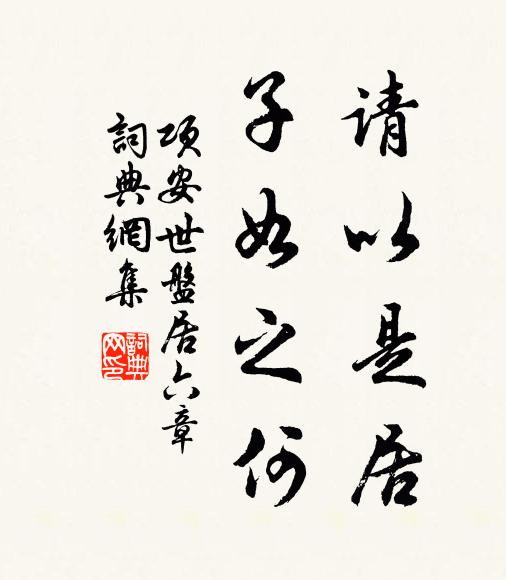 请以是居
子如之何
项安世盤居六章
詞典網集
詞典网印